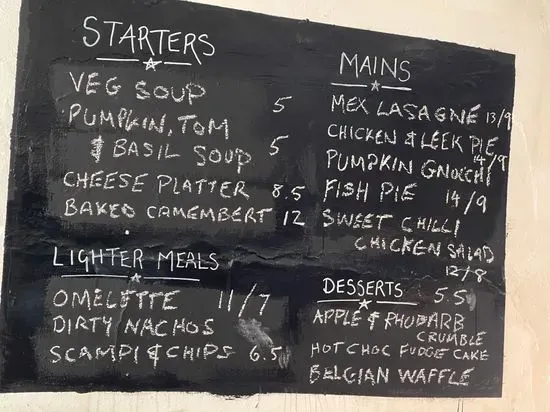 STARTERS
VEG SOUP 5
PUMPKIN, TOM
& BASIL SOUP 5
CHEESE PLATTER 8.5
BAKED CAMEMBERT 12
LIGHTER MEALS
OMELETTE 11/7
DIRTY NACHOS
SCAMPI & CHIPS 6.5
MAINS
MEX LASAGNE 13/9
CHICKEN & LEEK PIE
14/9
PUMPKIN GNOCCHI
FISH PIE 14/9
SWEET CHILLI
CHICKEN SALAD
12/8
DESSERTS 5.5
APPLE & RHUBARB
CRUMBLE
HOT CHOC FUDGE CAKE
BELGIAN WAFFLE